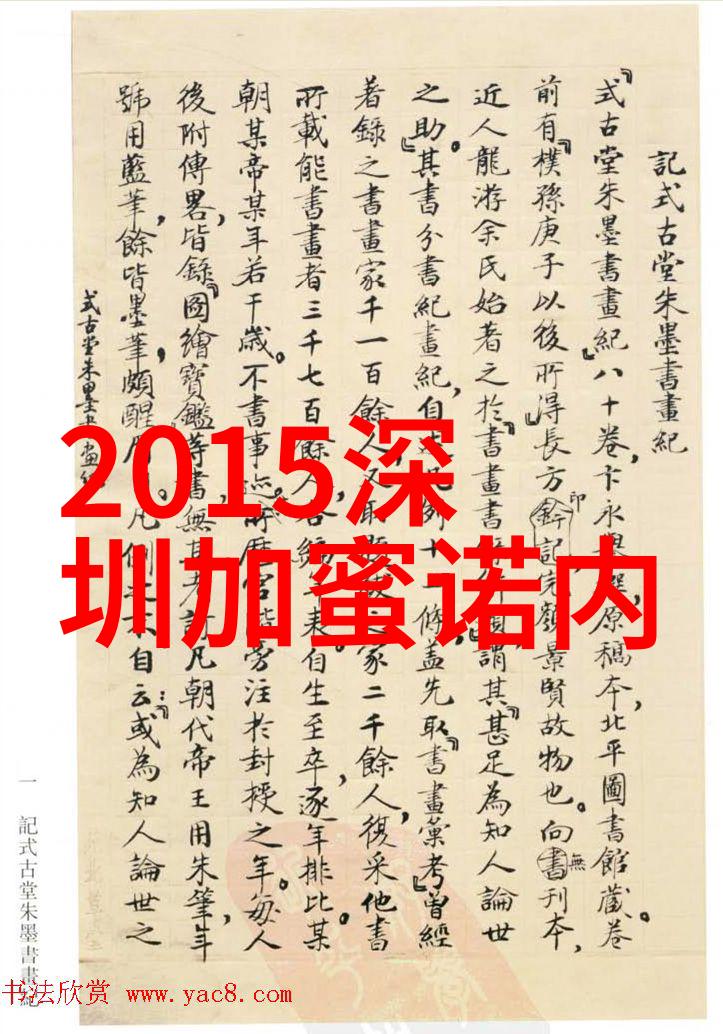 記式古堂朱墨書畫紀
『式古堂朱墨書畫紀』八十卷，卞永譽撰，原稿本，北平圖書館藏。卷
前有『樸孫庚子以後所得』長方印記，完顏景賢故物也。向無刊本，
近人龍游余氏始著之於『書畫書 謂其『甚足為知人論世
之助』。其書分書紀畫紀，自 凡例十一條，蓋先取『書畫彙考』曾經
著錄之書畫家千一百餘人，又取 之家二千餘人，復采他書
所載能書畫者三千七百餘人，各編 表。自生至卒，逐年排比，某
朝某帝某年若干歲。不書事迹，所歷官階旁注於封授之年。每人
後附傳畧，皆錄『圖繪寶鑑』等書，無甚考訂。凡朝代帝王用朱筆，年
號用藍筆，餘皆墨筆，頗醒 。凡例之末自云：『或為知人論世之
式古堂朱墨書畫紀
一 記式古堂朱墨書畫紀
2015深
圳加蜜诺内
书法欣赏 www.yac8.com